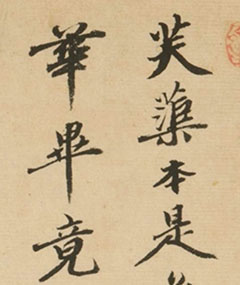 芙蕖本是
華畢竟